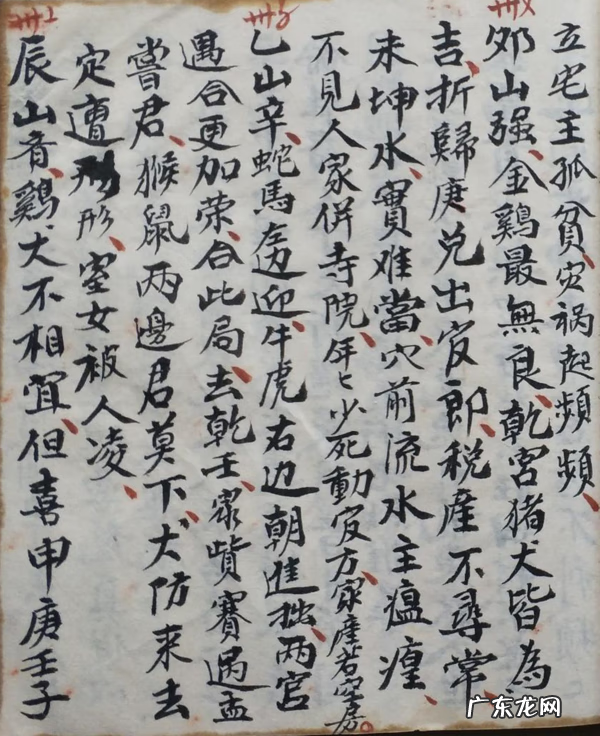 立宅主孤貧、灾禍起頻頻、
卯山强、金鷄最無良、乾宮猪犬皆為
吉、折歸庚兑出官郎、税產不尋常、
未坤水、實难當、穴前流水主瘟㾮、
不見人家併寺院、年七少死動官方、家產若空房。
乙山辛、蛇馬左边迎、牛虎右边朝進拙、两宮
遇合更加荣、合此局、去乾壬、家赀賽過孟
嘗君、猴鼠两邊君莫下、犬防来去
定遭形、室女被人凌、
辰山音、鷄犬不相宜、但喜申庚壬子
广东龙网